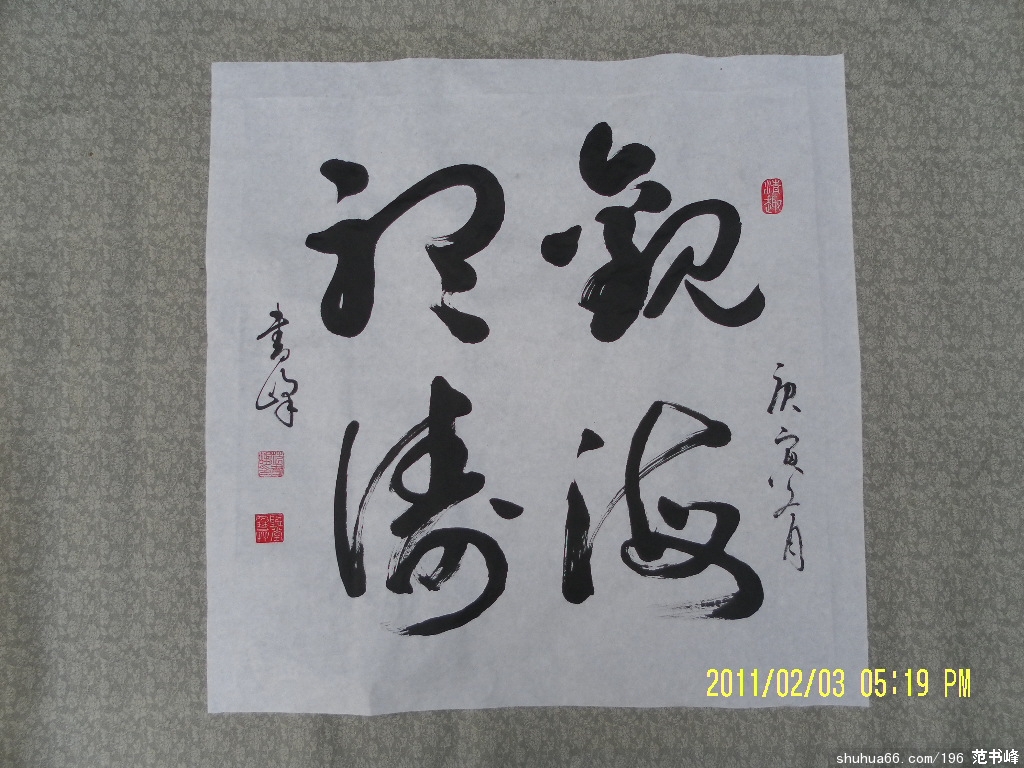 情趣
庚寅冬月
觀海
聽濤
書峰
2011/02/03 05:19 PM
shuhua66.com/196 范书峰